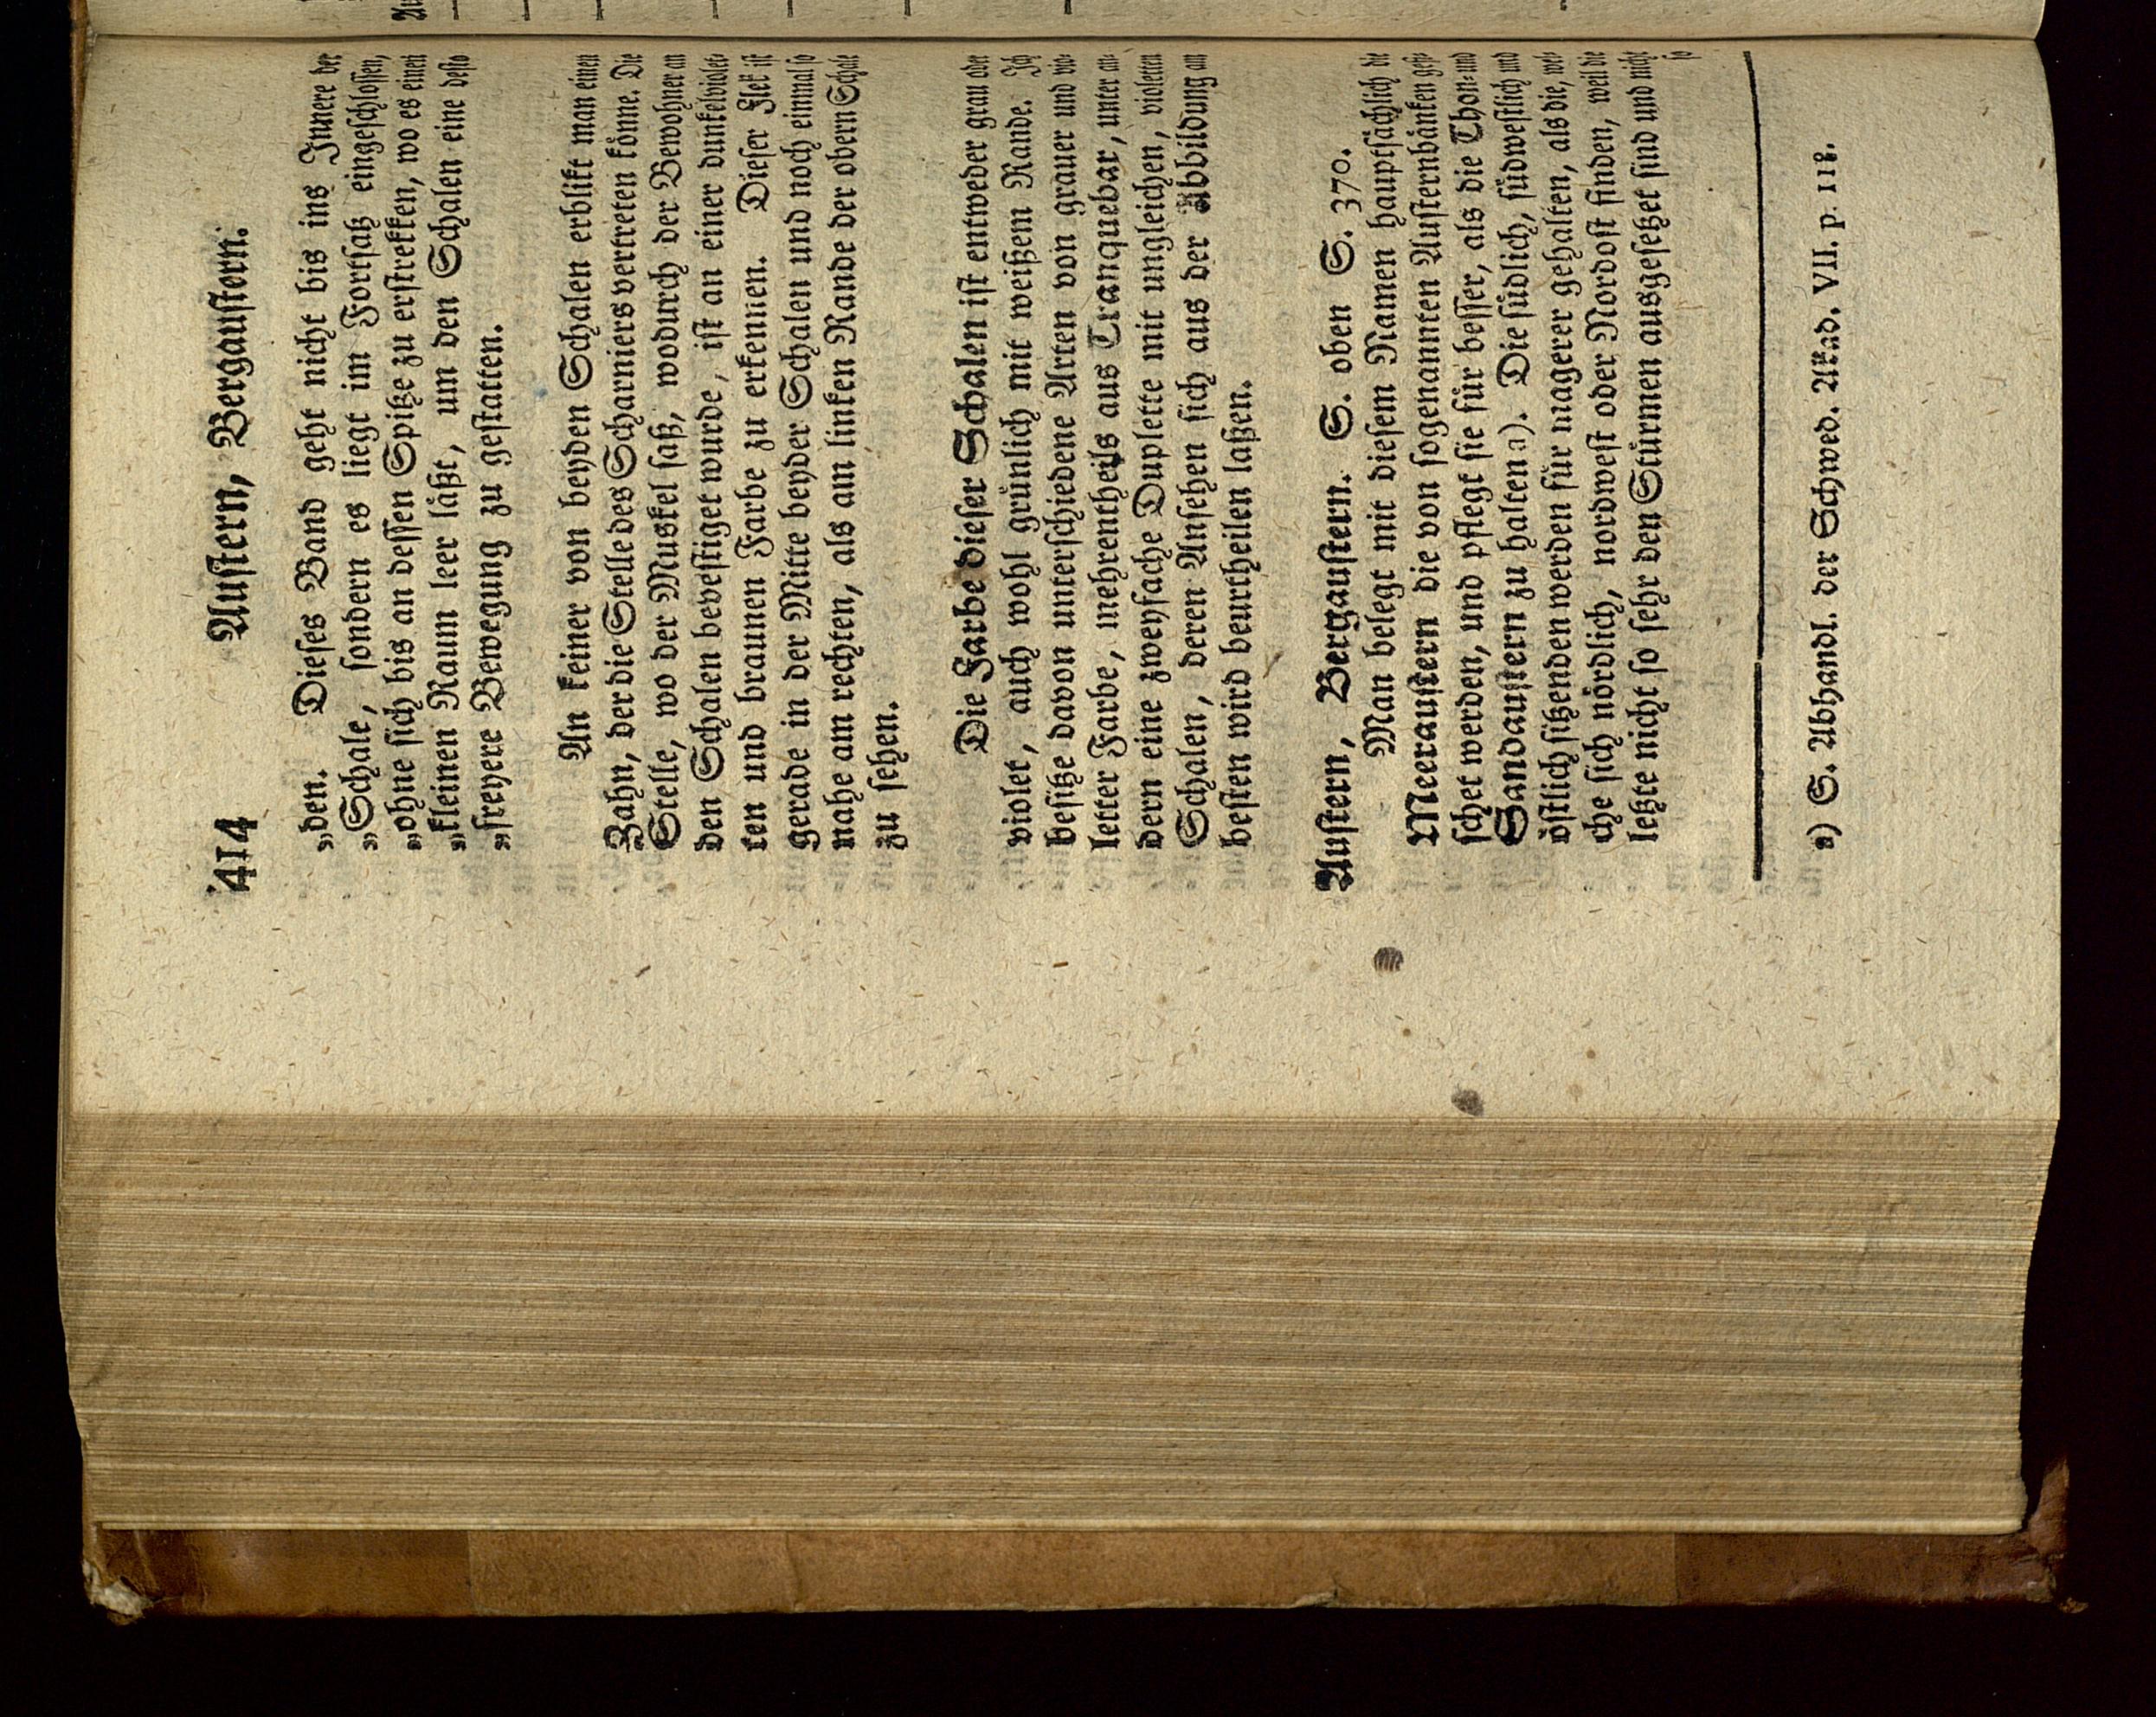 414 Austern, Bergaustern.
„den. Dieses Band geht nicht bis ins Innere der
„Schale, sondern es liegt im Fortsatz eingeschlossen,
„ohne sich bis an dessen Spitze zu erstrekken, wo es einen
„kleinen Raum leer läßt, um den Schalen eine desto
„freyere Bewegung zu gestatten.
An keiner von beyden Schalen erblikt man einen
Zahn, der die Stelle des Scharniers vertreten könne. Die
Stelle, wo der Muskel saß, wodurch der Bewohner an
den Schalen bevestiget wurde, ist an einer dunkelviolet-
ten und braunen Farbe zu erkennen. Dieser Flek ist
gerade in der Mitte beyder Schalen und noch einmal so
nahe am rechten, als am linken Rande der obern Schale
zu sehen.
Die Farbe dieser Schalen ist entweder grau oder
violet, auch wohl grünlich mit weißem Rande. Ich
besitze davon unterschiedene Arten von grauer und vio-
letter Farbe, mehrentheils aus Tranquebar, unter an-
dern eine zweyfache Duplette mit ungleichen, violetten
Schalen, deren Ansehen sich aus der Abbildung am
besten wird beurtheilen laßen.
Austern, Bergaustern. S. oben S. 370.
Man belegt mit diesem Namen hauptsächlich die
Meeraustern die von sogenannten Austernbänken gefi-
schet werden, und pflegt sie für besser, als die Thon- und
Sandaustern zu halten a). Die südlich, südwestlich und
östlich sitzenden werden für magerer gehalten, als die, wel-
che sich nördlich, nordwest oder Nordost finden, weil die
letzte nicht so sehr den Stürmen ausgesetzet sind und nicht
so
a) S. Abhandl. der Schwed. Akad. VII. p. 118.